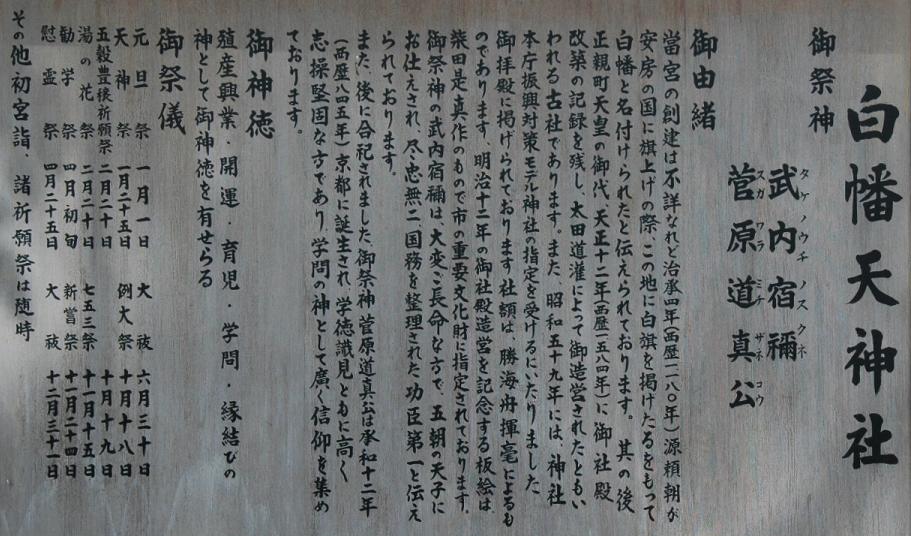 白幡天神社
御祭神
武内宿禰
タケノウチノスクネ
菅原道真公
スガワラミチザネコウ
御由緒
当宮の創建は不詳なれど治承四年(西歴一一八〇年)源頼朝が
安房の国に旗上げの際、この地に白旗を掲げたるをもって
白幡と名付けられたと伝えられております。其の後
正親町天皇の御代、天正十二年(西歴一五八四年)に御社殿
改築の記録を残し、太田道灌によって御造営されたともい
われる古社であります。また、昭和五十九年には、神社
本庁振興対策モデル神社の指定を受けるにいたりました
御拝殿に掲げられております社額は、勝海舟揮毫によるも
のであります、明治十二年の御社殿造営を記念する板絵は
柴田是真作のもので市の重要文化財に指定されております。
御祭神の武内宿禰は、大変ご長命な方で、五朝の天子に
お仕えされ、尽忠無二、国務を整理された功臣第一と伝え
られております。
また、後に合祀されました、御祭神菅原道真公は承和十二年
(西歴八四五年)京都に誕生され、学徳識見ともに高く
志操堅固な方であり、学問の神として廣く信仰を集め
ております。
御神徳
殖産興業・開運・育児・学問・縁結びの
神として御神徳を有せらる
御祭儀
元旦祭 一月一日 大祓 六月三十日
天神祭 一月二十五日 例大祭 十月十八日
五穀豊穣祈願祭 二月二十日 十月十九日
湯の花祭 二月二十日 七五三祭 十一月十五日
勧学祭 四月初旬 新嘗祭 十一月二十四日
慰霊祭 四月二十五日 大祓 十二月三十一日
その他初宮詣、諸祈願祭は随時